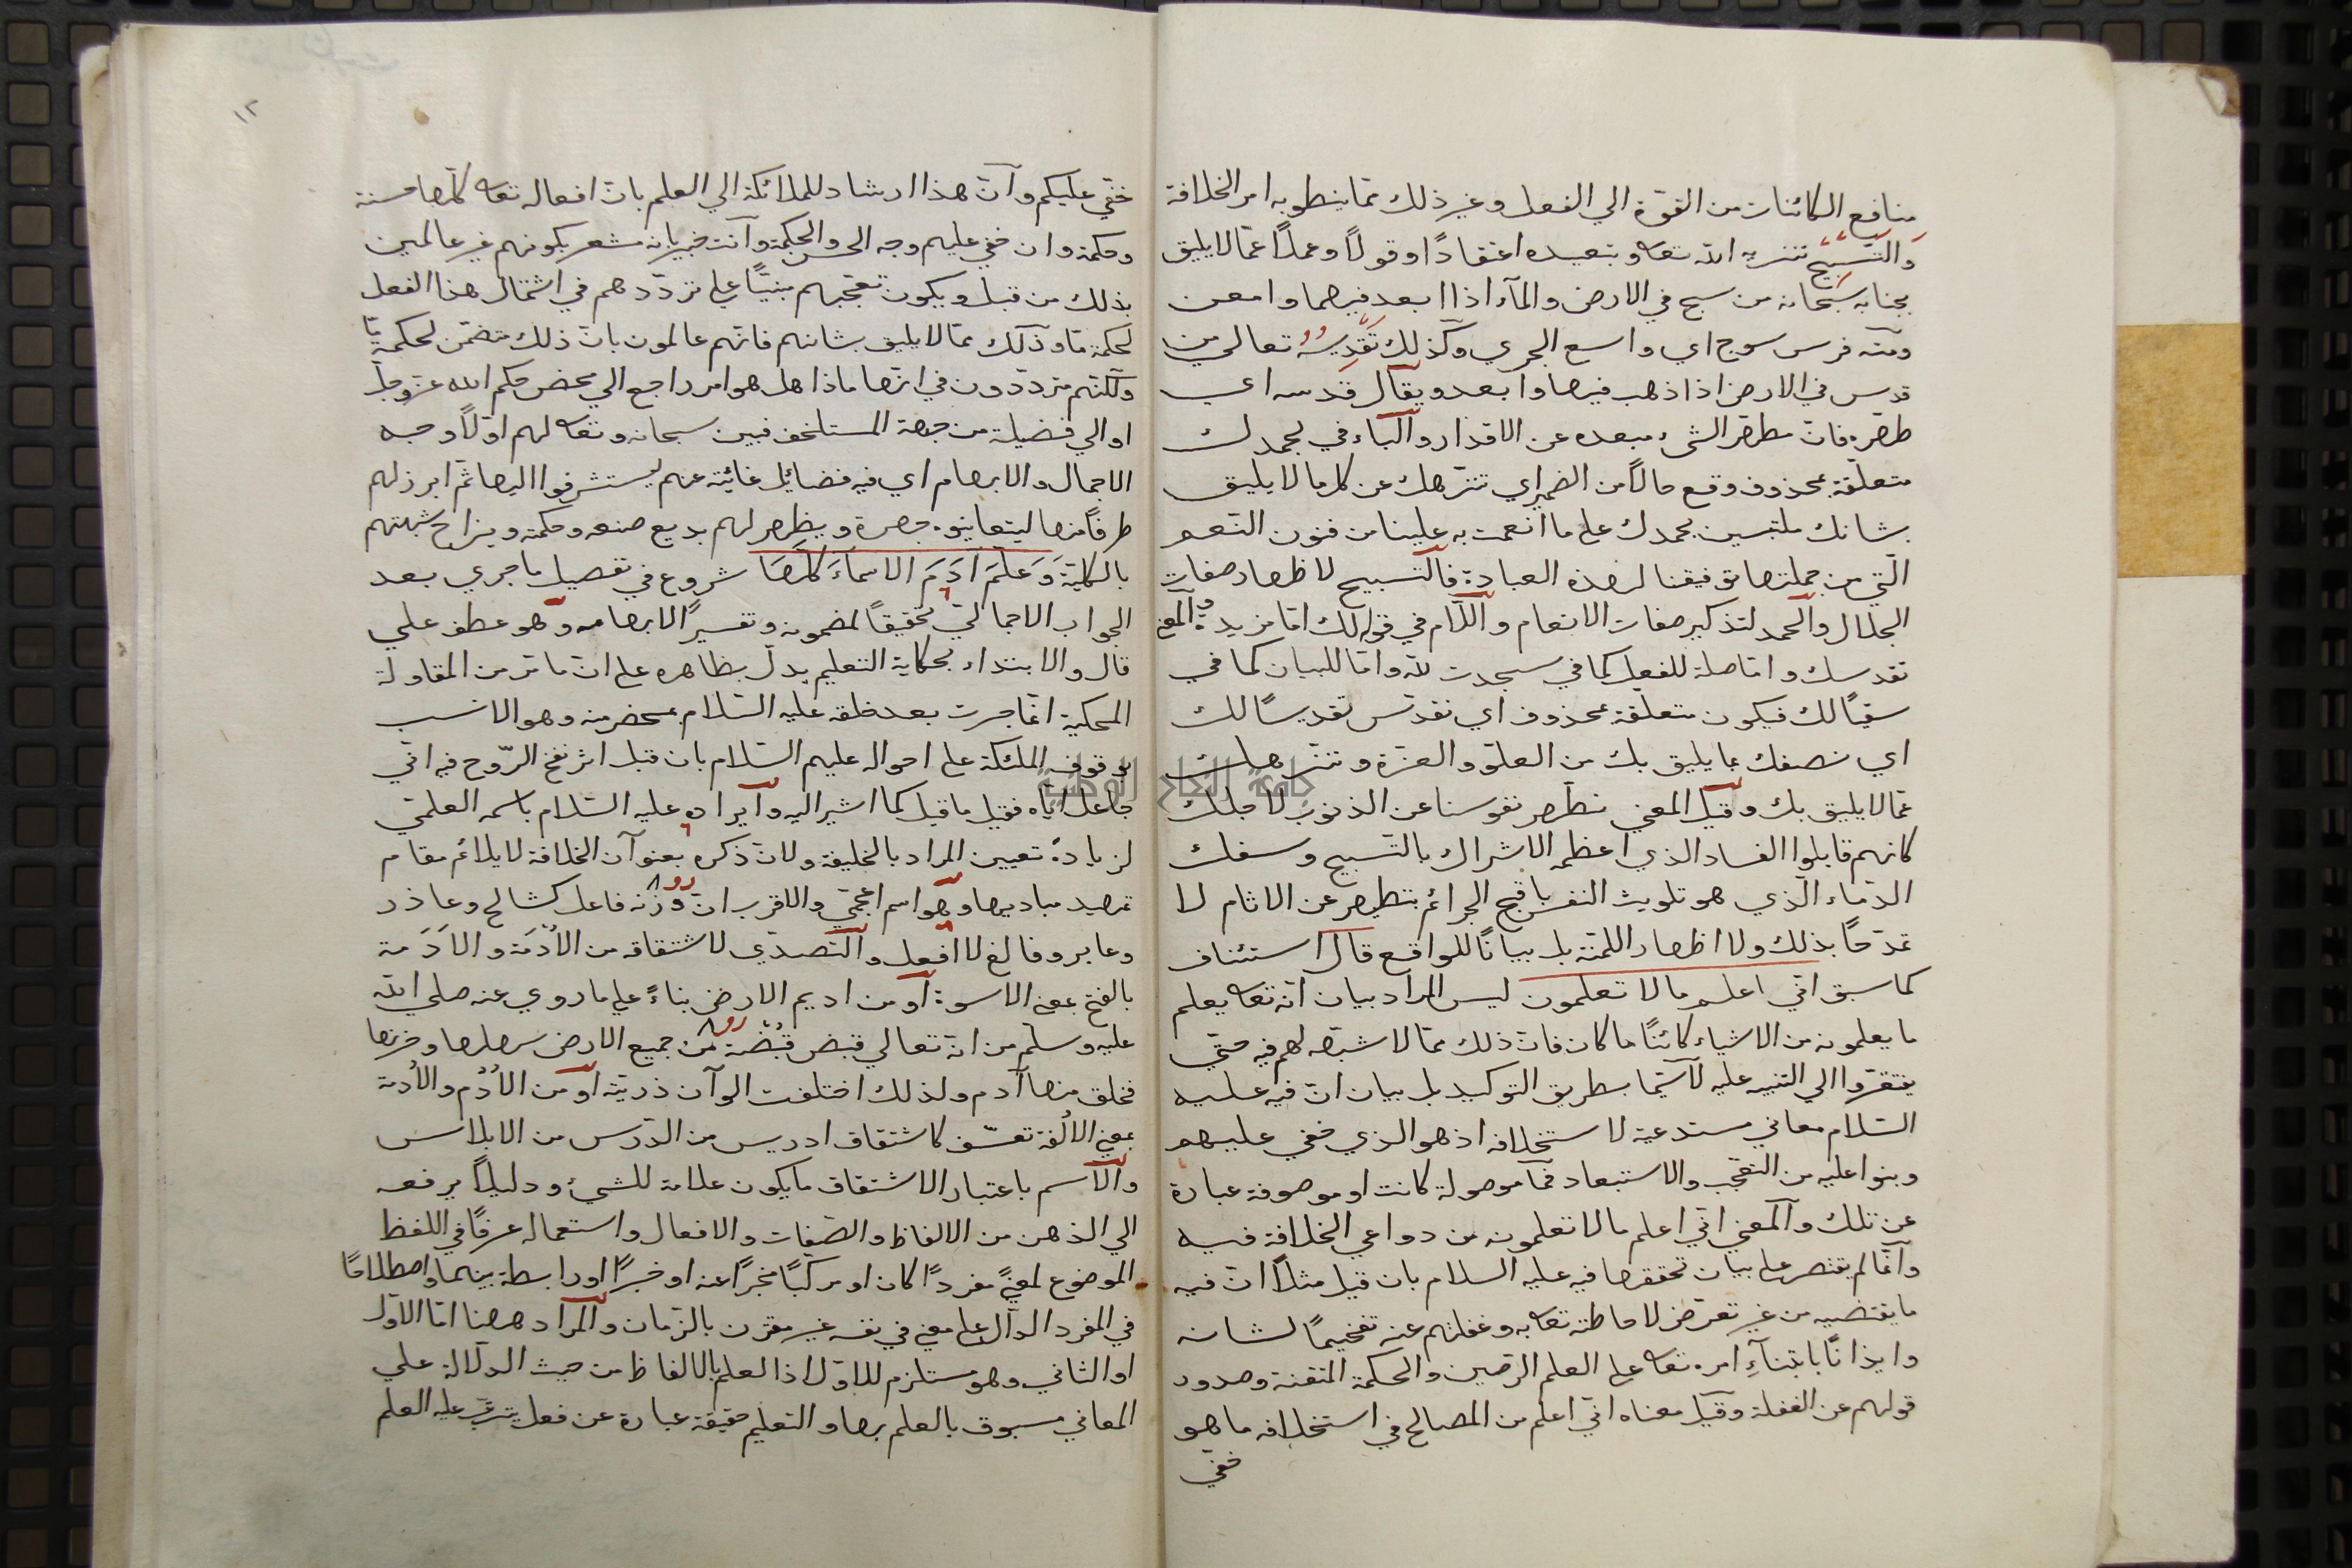 منافع الكائنات من القوة الي الفعل وغير ذلك مما ينط به امر الخلافة
والتسبيح تنزيه الله تعا وتبعيده اعتقادًا وقولًا وعملًا عما لا يليق
بجنابه سبحانه من سبح في الارض والمآء اذا ابعد فيهما وامعن
ومنه فرس سبوح اي واسع الجري وكذلك تقديسه تعالي من
قدس في الارض اذا ذهب فيها وابعد ويقال قدسه اي
طهره فان مطهر الشيء مبعده عن الاقدار والباء في بحمدك
متعلقة بمحذوف وقع حالًا من الضمير اي ننزهك عن كل ما لا يليق
بشانك ملتبسين بحمدك علي ما انعمت به علينا من فنون النعم
التي من جملتها توفيقنا لهذه العبادة فالتسبيح لاظهار صفات
الجلال والحمد لتذكير صفات الانعام واللام في قوله لك اما مزيدة والمعني
نقدسك واما صلة للفعل كما في سجدت لله واما للبيان كما في
سقيًا لك فيكون متعلقة بمحذوف اي نقدس تقديسًا لك
اي نصفك بما يليق بك من العلو والعزة وننزهك
عما لا يليق بك وقيل المعني نطهر نفوسنا عن الذنوب لاجلك
كانهم قابلوا الفساد الذي اعظمه الاشراك بالتسبيح وسفك
الدماء الذي هو تلويث النفس باقبح الجرائم بتطهير عن الاثام لا
تمدحًا بذلك ولا اظهارا للمنة بل بيانًا للواقع قال استئناف
كما سبق اني اعلم ما لا تعلمون ليس المراد بيان انه تعا يعلم
ما يعلمونه من الاشياء كائنًا ما كان فان ذلك مما لا شبهة لهم فيه حتي
يفتقروا الي التنبيه عليه لاسيما بطريق التوكيد بل بيان ان فيه عليه
السلام معاني مستدعية لاستخلافه اذ هو الذي خفي عليهم
وبنوا عليه من التعجب والاستبعاد فما موصولة كانت او موصوفة عبارة
عن تلك والمعني اني اعلم ما لا تعلمونه من دواعي الخلافة فيه
وانما لم يقتصر علي بيان تحققها فيه عليه السلام بان قيل مثلًا ان فيه
ما يقتضيه من غير تعرض لاحاطته تعا به وغفلتهم عنه تفخيمًا لشانه
وايذانًا بابتناء امره تعا علي العلم الرصين والحكمة المتقنة وصدور
قولهم عن الغفلة وقيل معناه اني اعلم من المصالح في استخلافه ما هو
خفي
١٢
خفي عليكم وان هذا ارشاد للملائكة الي العلم بان افعاله تعا كلها حسنة
وحكمة وان خفي عليهم وجه الحسن والحكمة وانت خبير بانه مشعر بكونهم غير عالمين
بذلك من قبل ويكون تعجبهم مبنيًا علي ترددهم في اشتمال هذا الفعل
لحكمة ما وذلك مما لا يليق بشانهم فانهم عالمون بان ذلك متضمن لحكمة ما
ولكنهم مترددون في انها ماذا هل هو امر راجع الي محض حكم الله عز وجل
او الي فضيلة من جهة المستلخف فبين سبحانه وتعا لهم اولًا وجه
الاجمال والابهام اي فيه فضائل غائبة عنهم ليستشرفوا اليها ثم ابرز لهم
طرفًا منها ليتعاينوه جهرة ويظهر لهم بديع صنعه وحكمته وينزاح شبهتهم
بالكلية وَعَلَّمَ ادَمَ الاسماءَ كُلَّهَا شروع في تفصيل ما جري بعد
الجواب الاجمالي تحقيقًا لمضمونه وتفسيرًا لابهامه وهو عطف علي
قال والابتداء بحكاية التعليم يدل بظاهره علي ان ما مر من المقاولة
المحكية انما جرت بعد خلقه عليه السلام بمحضر منه وهو الانسب
بوقوف الملئكة علي احواله عليهم السلام بان قيل اثر نفخ الروح فيه اني
جاعل اياه فقيل ما قيل كما اشير اليه وايراده عليه السلام باسمه العلمي
لزيادة تعيين المراد بالخليفة ولان ذكره بعنوان الخلافة لا يلائم مقام
تمهيد مباديها وهو اسم اعجمي والاقرب ان وزنه فاعل كشالح وعاذر
وعابر وفالغ لا افعل والتصدي لاشتقاقه من الأُدْمَة والاَدَمة
بالفتح بمعني الاسوة او من اديم الارض بناءً علي ما روي عنه صلي الله
عليه وسلم من انه تعالي قبض قبضة من جميع الارض سهلها وحزنها
فخلق منها آدم ولذلك اختلفت الوآن ذريته او من الأدم والأدمة
بمعني الألفة تعسف كاشتقاق ادريس من الدرس من الابلاس
والاسم باعتبار الاشتقاق ما يكون علامة للشيء ودليلًا يرفعه
الي الذهن من الالفاظ والصفات والافعال واستعماله عرفًا في اللفظ
الموضوع لمعنيً مفردًا كان او مركبًا مخبرًا عنه او خبرًا او رابطة بينهما واصطلاحًا
في المفرد الدال علي معني في نفسه غير مقترن بالزمان والمراد ههنا اما الاول
او الثاني وهو مستلزم للاول اذ العلم بالالفاظ من حيث الدلالة علي
المعاني مسبوق بالعلم بها والتعليم حقيقة عبارة عن فعل يترتب عليه العلم
جامعة النجاح الوطنية